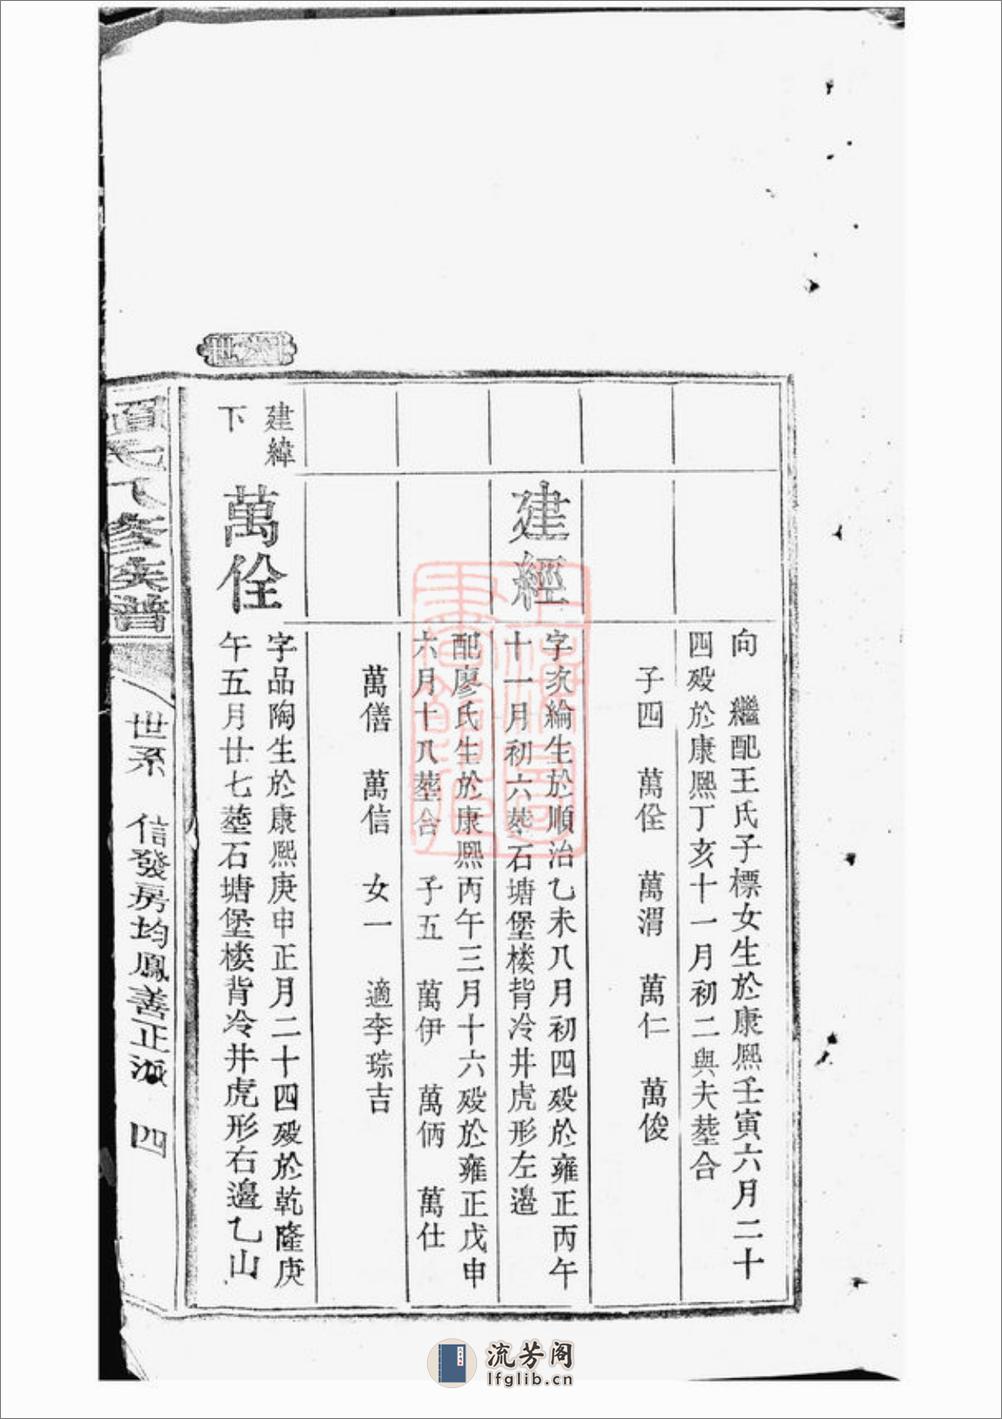 向　繼配王氏子標女生於康熙壬寅六月二十
四殁於康熙丁亥十一月初二與夫塟合
子四　萬佺　萬渭　萬仁　萬俊
建經
字次綸生於順治乙未八月初四殁於雍正丙午
十一月初六塟石塘堡楼背冷井虎形左邉
配廖氏生於康熙丙午三月十六殁於雍正戊申
六月十八塟合　子五　萬伊　萬侢　萬仕
萬僐　萬信　女一　適李琮吉
建緯
下
萬佺
字品陶生於康熙庚申正月二十四殁於乾隆庚
午五月廿七塟石塘堡楼背冷井虎形右邉乙山
修族譜
世系　信發房均鳳善正派　四
上海圖書館藏
流芳阁
lfglib.cn